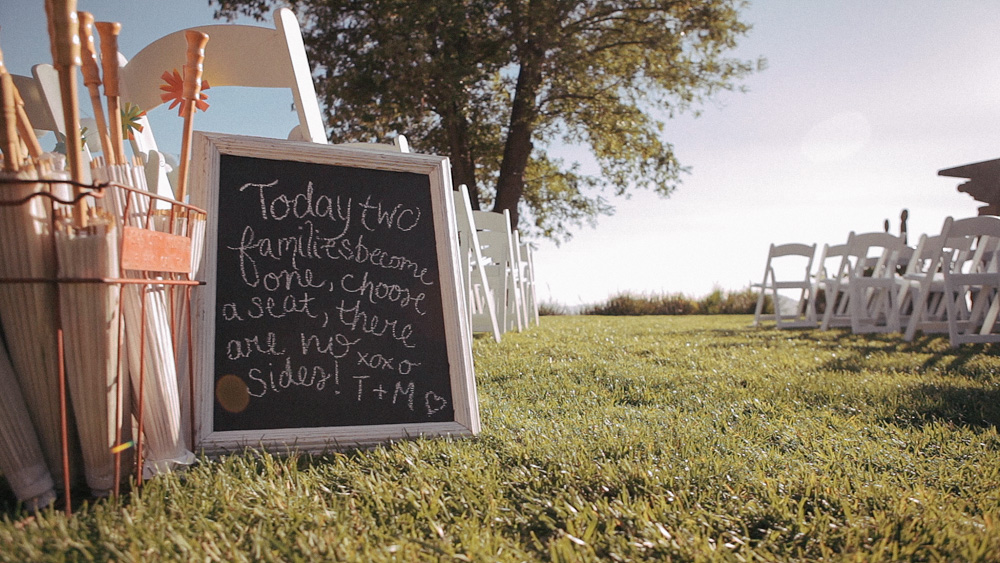 Today two
families become
one, choose
a seat, there
are no xoxo
sides! T+M ♡